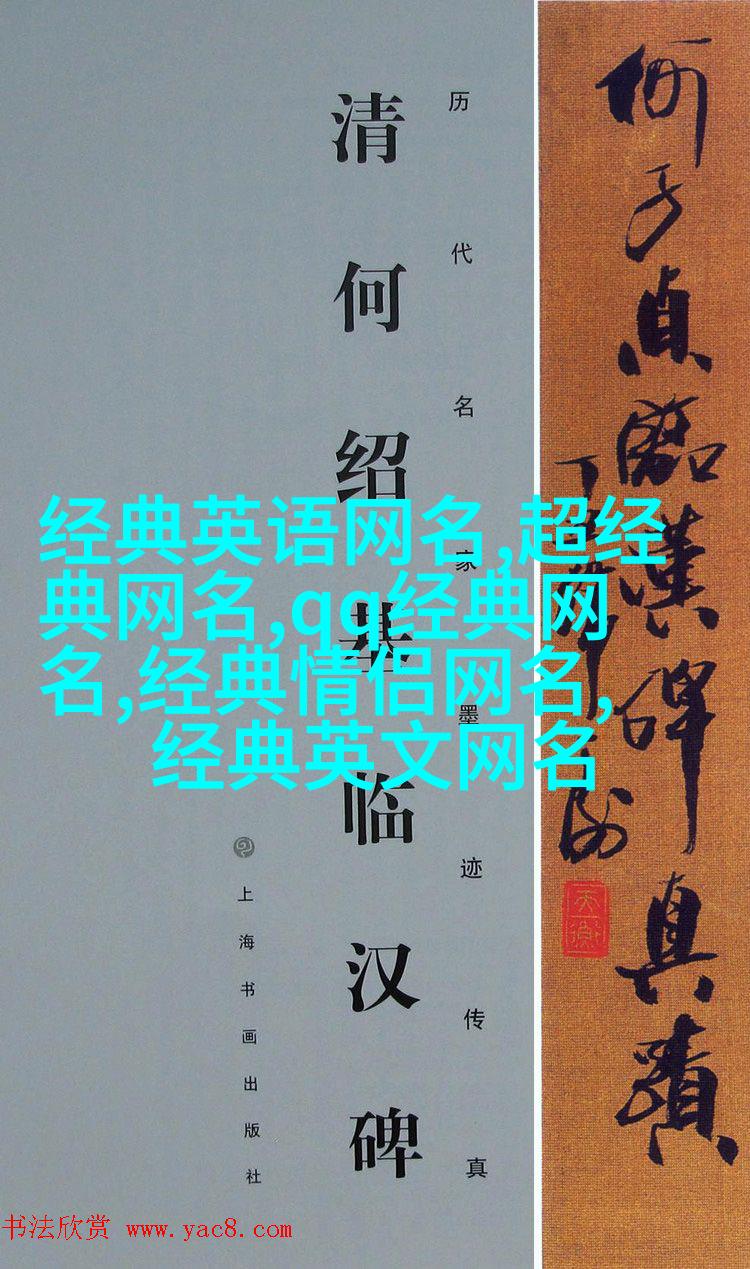 何子貞臨漢碑真蹟
天衡
历代名家墨迹传真
清何绍基临汉碑
上海书画出版社
经典英语网名,超经
典网名,qq经典网
名,经典情侣网名,
经典英文网名
书法欣赏 www.yac8.com